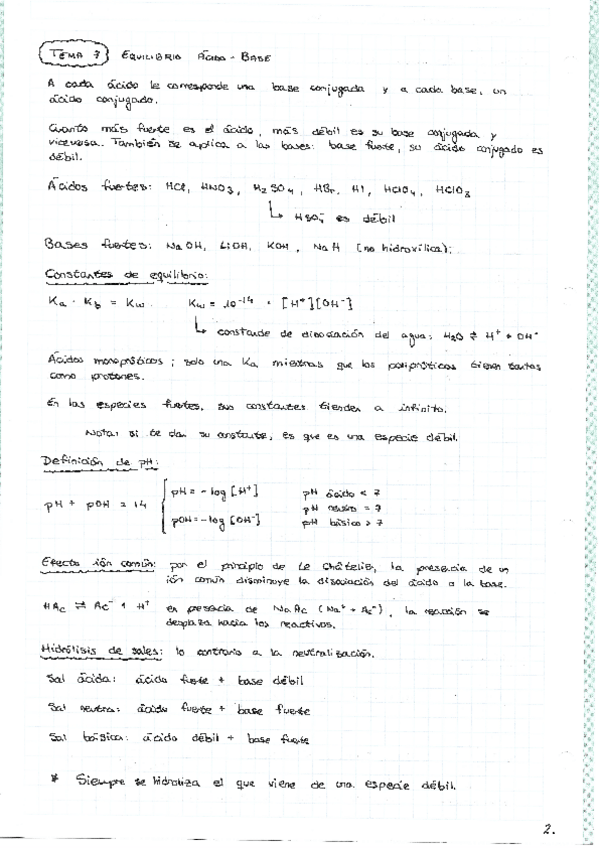 TEMA 7 EQUILIBRIO ÁCIDO - BASE
A cada ácido le corresponde una base conjugada y a cada base, un
ácido conjugado.
Cuanto más fuerte es el ácido, más débil es su base conjugada y
viceversa. También se aplica a las bases: base fuerte, su ácido conjugado es
débil.
Ácidos fuertes: HCl, HNO3, H2SO4, HBr, HI, HClO4, HClO3
↳ HSO4⁻ es débil
Bases fuertes: NaOH, LiOH, KOH, NaH (no hidroxílica);
Constantes de equilibrio:
Ka · Kb = Kw. Kw = 10⁻¹⁴ = [H⁺][OH⁻]
↳ constante de disociación del agua: H2O ⇌ H⁺ + OH⁻
Ácidos monopróticos; solo una Ka mientras que los polipróticos tienen tantas
como protones.
En las especies fuertes, sus constantes tienden a infinito.
Nota: si te dan su constante, es que es una especie débil.
Definición de pH:
pH + pOH = 14
pH = -log [H⁺] pH ácido < 7
pH neutro = 7
pOH = -log [OH⁻] pH básico > 7
Efecto ión común: por el principio de Le Châtelier, la presencia de un
ión común disminuye la disociación del ácido o la base.
HAc ⇌ Ac⁻ + H⁺ en presencia de NaAc (Na⁺ + Ac⁻), la reacción se
desplaza hacia los reactivos.
Hidrólisis de sales: lo contrario a la neutralización.
Sal ácida: ácido fuerte + base débil
Sal neutra: ácido fuerte + base fuerte
Sal básica: ácido débil + base fuerte
* Siempre se hidroliza el que viene de una especie débil.
2.